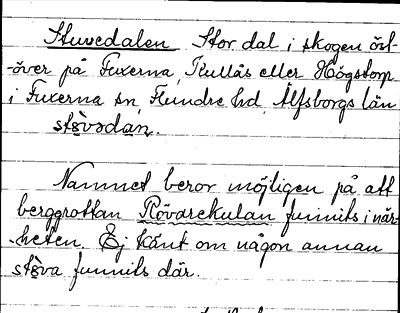 Stuvedalen Stor dal i skogen öst-
-över på Fuxerna, Kullås eller Högstorp
i Fuxerna sn, Flundre hd, Älfsborgs län
stòvədan.
Namnet beror möjligen på att
berggrottan Rövarekulan funnits i när-
-heten. Ej känt om någon annan
stòva funnits där.